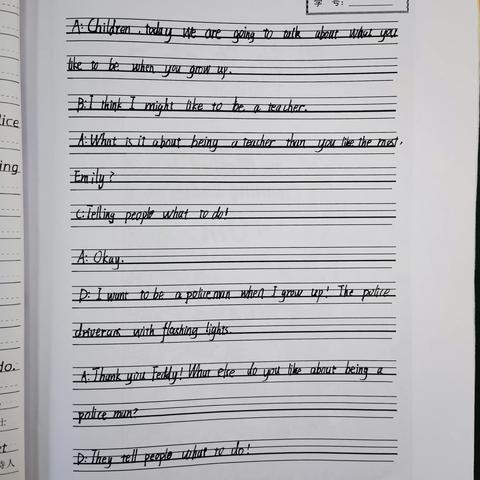 学 号:
A: Children, today we are going to talk about what you
like to be when you grow up.
B: I think I might like to be a teacher.
A: What is it about being a teacher than you like the most,
Emily?
C: Telling people what to do!
A: Okay.
D: I want to be a policeman when I grow up! The police
with flashing lights.
A: Thank you Teddy! What else do you like about being a
police man?
D: They tell people what to do!
lice
ing
do.